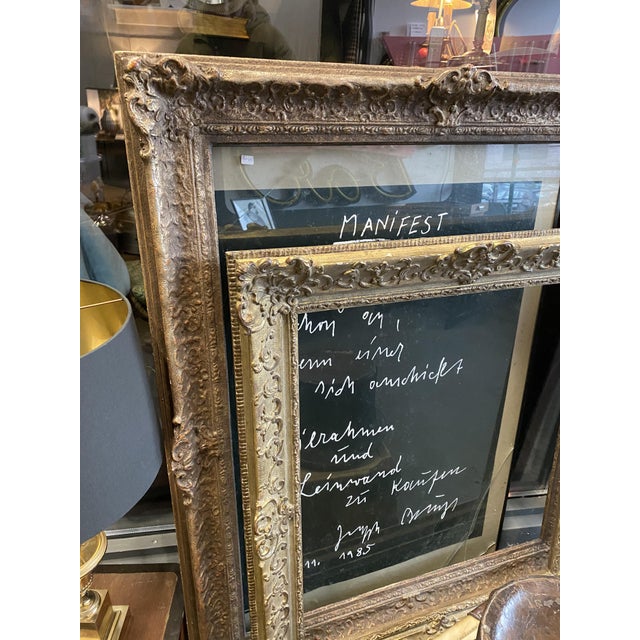 MANIFEST
hon an,
enn einer
sich anschickt
erahmen
und
Leinwand
zu kaufen
Joseph Beuys
11. 1985